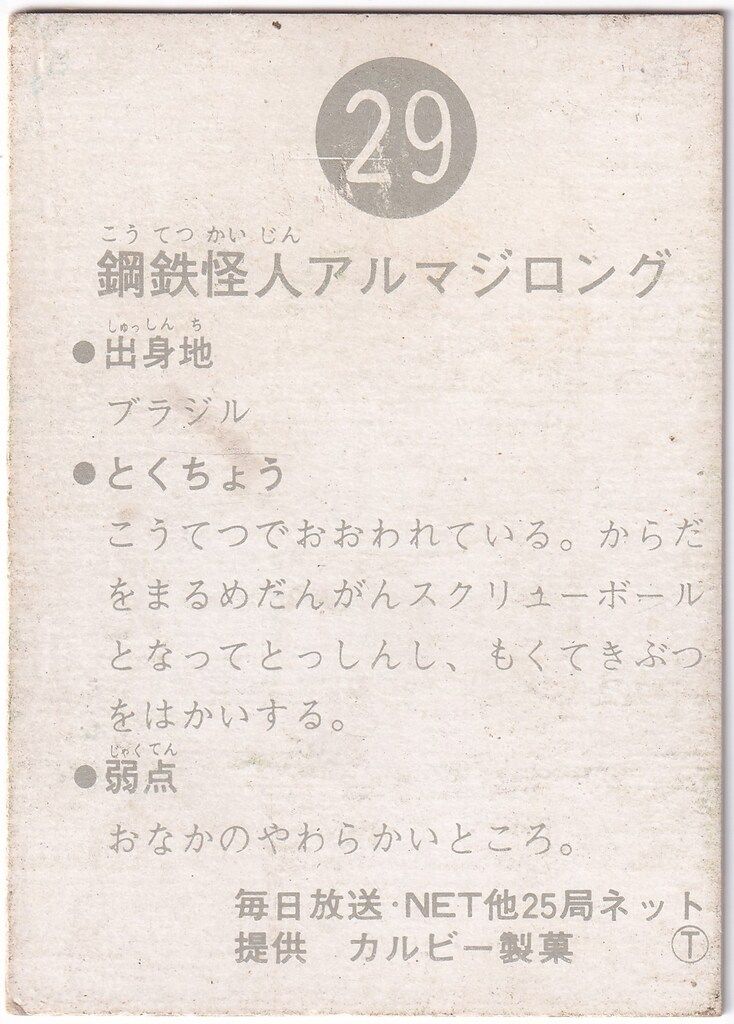 29
こうてつかいじん
鋼鉄怪人アルマジロング
しゅっしんち
●出身地
ブラジル
●とくちょう
こうてつでおおわれている。からだ
をまるめだんがんスクリューボール
となってとっしんし、もくてきぶつ
をはかいする。
じゃくてん
●弱点
おなかのやわらかいところ。
毎日放送·NET他25局ネット
提供　カルビー製菓　Ⓣ